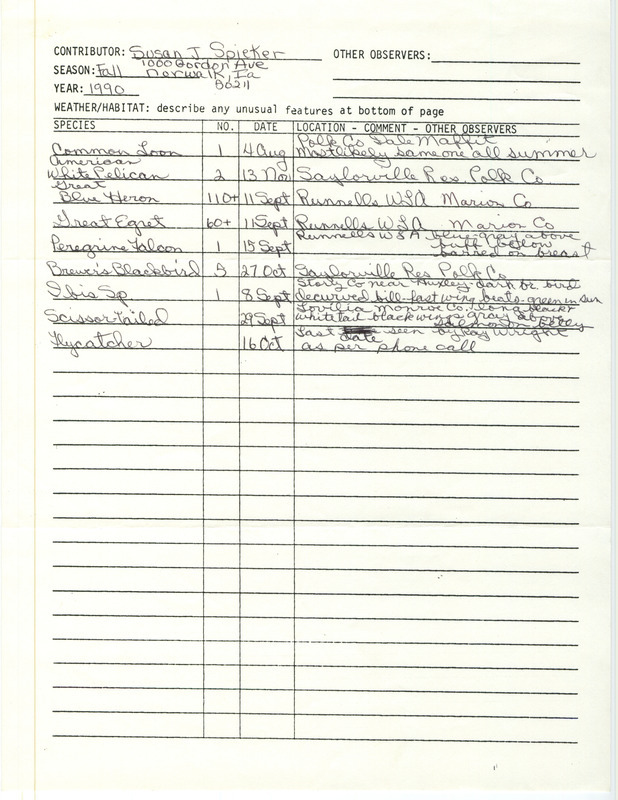 CONTRIBUTOR: Susan J Spieker OTHER OBSERVERS:
SEASON: Fall 1000 Gordon Ave
Norwalk, Ia
YEAR: 1990 50211
WEATHER/HABITAT: describe any unusual features at bottom of page
SPECIES NO. DATE LOCATION - COMMENT - OTHER OBSERVERS
Polk Co Lake Maffit
Common Loon 1 4 Aug Most likely same one all summer
American
White Pelican 2 13 Nov Saylorville Res Polk Co
Great
Blue Heron 110+ 11 Sept Runnells WLA Marion Co
Great Egret 60+ 11 Sept Runnells WLA Marion Co
Runnells WLA blue-gray above
Peregrine Falcon 1 15 Sept buff below
barred on breast
Brewer's Blackbird 5 27 Oct Saylorville Res Polk Co
Story Co near Huxley-dark br. bird
Ibis Sp 1 8 Sept decurved bill-fast wing beats-green in sun
Lovilia Monroe Co. long black &
Scissor tailed 29 Sept white tail-black wings gray above
salmon on belly
Last date seen by Ray Wright
Flycatcher 16 Oct as per phone call